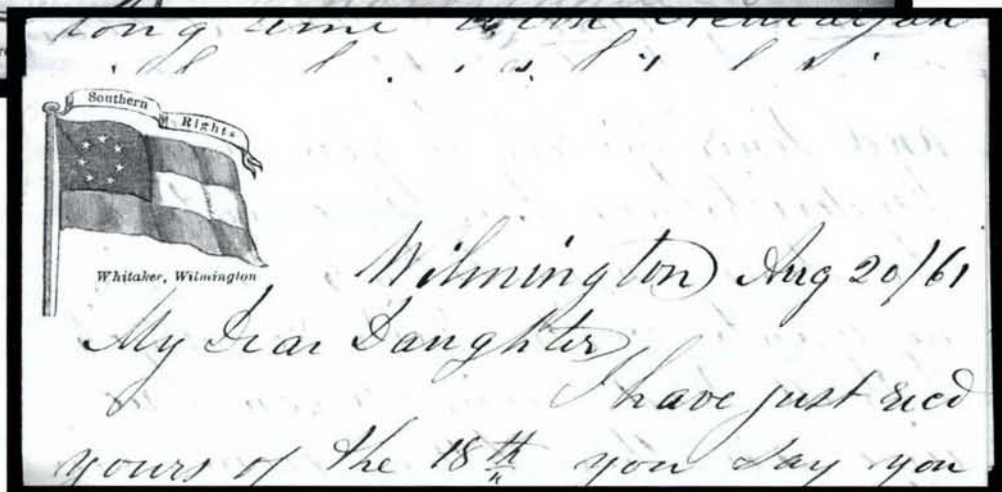 long time
Southern
Rights
Whitaker, Wilmington
Wilmington Aug 20/61
My Dear Daughter
I have just recd
yours of the 18th you say you